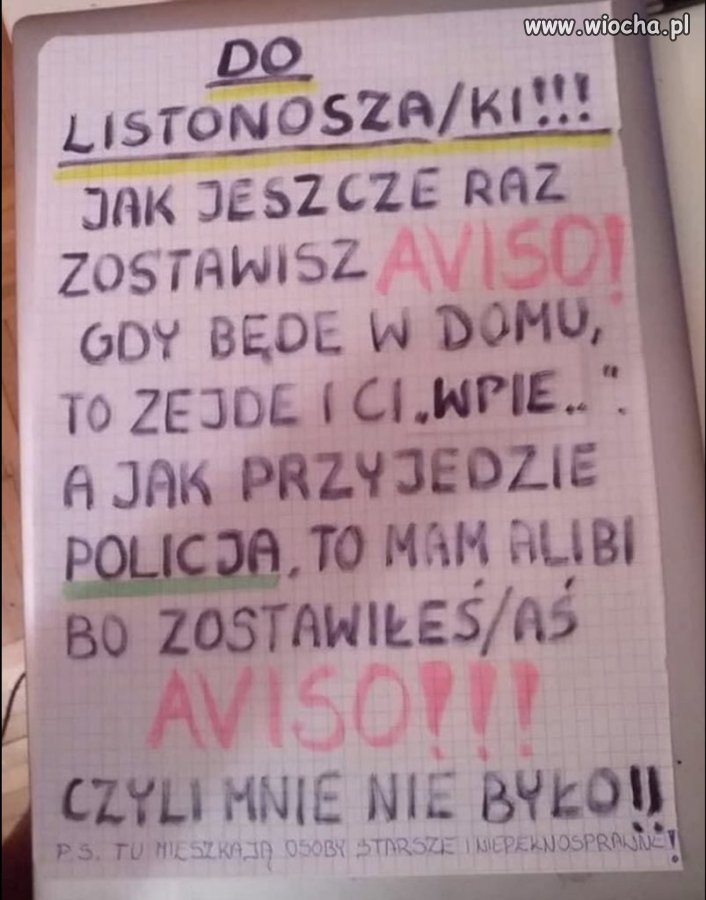 www.wiocha.pl
DO
LISTONOSZA/KI!!!
JAK JESZCZE RAZ
ZOSTAWISZ AVISO!
GDY BĘDE W DOMU,
TO ZEJDE I CI „WPIE..".
A JAK PRZYJEDZIE
POLICJA, TO MAM ALIBI
BO ZOSTAWIŁEŚ/AŚ
AVISO!!!
CZYLI MNIE NIE BYŁO!!
P.S. TU MIESZKAJĄ OSOBY STARSZE I NIEPEŁNOSPRAWNE!